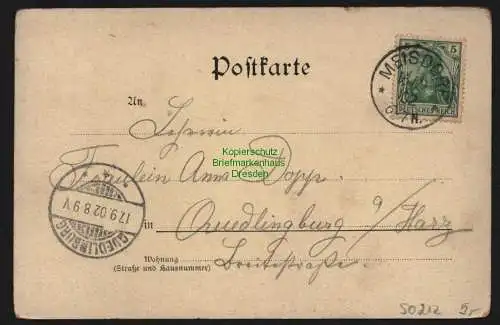 Postkarte
5
MEISDORF
An
Fräulein Anna Dopp
Kopierschutz
Briefmarkenhaus
Dresden
QUEDLINBURG
17.9.02.8-9V
in Quedlinburg a/Harz
Wohnung
(Straße und Hausnummer)
Breitestraße.
50212 5,-